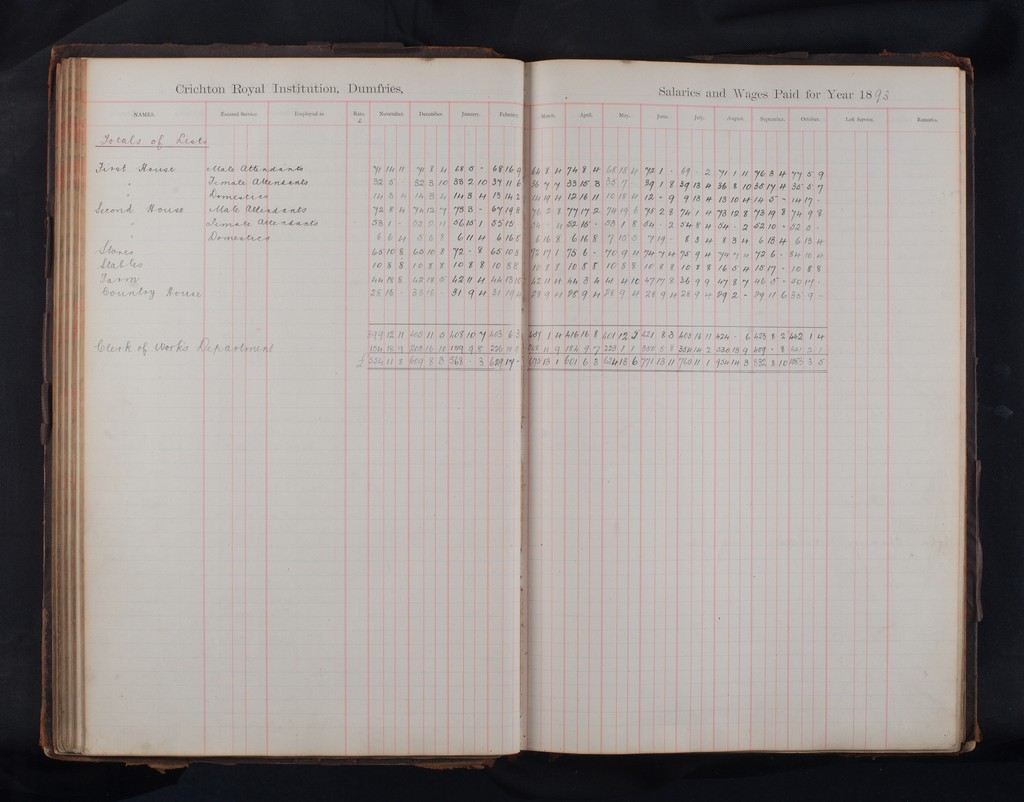 Crichton Royal Institution, Dumfries.
Salaries and Wages Paid for Year 1893
NAMES. Entered Service. Employed as Rate. £ November. December. January. February. March. April. May. June. July. August. September. October. Left Service. Remarks.
Totals of Lists
First House Male Attendants 71 14 11 71 8 4 68 5 - 68 16 9 64 8 4 74 8 4 72 1 - 69 - 2 71 1 11 76 3 4 77 5 9
" Female Attendants 32 5 32 3 10 38 2 10 37 11 6 36 7 7 33 15 3 35 7 39 1 8 39 13 4 36 8 10 35 17 4 35 5 7
" Domestics 14 3 4 14 3 4 14 3 4 13 14 2 14 19 4 12 16 11 10 18 4 12 - 9 9 13 4 13 10 4 14 5 - 14 17 -
Second House Male Attendants 72 8 4 74 12 7 73 3 - 67 19 8 76 5 8 77 17 2 74 19 6 75 2 8 74 1 4 73 12 8 73 19 8 74 9 8
" Female Attendants 53 1 - 56 15 1 55 15 - 54 - 4 52 15 - 53 1 8 54 - 2 54 8 4 54 - 2 52 10 - 52 5 -
" Domestics 6 6 4 5 5 8 6 11 4 6 16 8 6 16 8 6 16 8 7 15 5 7 19 - 8 3 4 8 3 4 6 13 4 6 13 4
Stores 65 10 8 65 10 8 72 - 8 65 10 8 72 17 1 75 6 - 70 9 11 74 7 4 75 9 4 74 7 4 72 6 - 84 10 4
Stables 10 8 8 10 8 8 10 8 8 10 8 8 10 8 8 10 8 8 10 8 8 10 8 8 10 8 8 16 5 4 15 17 - 10 8 8
Farm 44 18 8 42 18 5 42 11 4 44 13 10 42 11 4 44 3 4 41 4 10 47 17 8 36 9 9 47 8 7 46 5 - 50 17 -
Country House 28 16 - 33 16 - 31 9 4 31 19 4 28 9 4 28 9 4 28 9 4 28 9 4 28 9 4 29 2 - 29 11 6 35 9 -
399 12 11 405 11 5 408 10 7 403 6 3 407 1 4 416 16 8 401 12 5 421 8 3 405 16 11 424 - 6 423 8 2 442 1 4
Clerk of Work's Department 154 18 9 203 16 11 159 9 8 226 10 9 266 11 9 184 9 7 223 1 1 350 5 8 354 14 2 530 13 9 409 - 8
£ 554 11 8 609 8 3 568 - 3 629 17 - 673 13 1 601 6 3 624 13 6 771 13 11 760 11 1 954 14 3 832 8 10 3 5